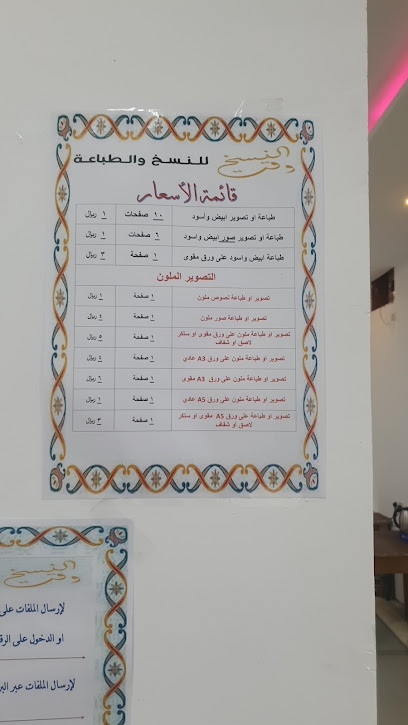 النسخ للنسخ والطباعة
قائمة الأسعار
طباعة او تصوير ابيض وأسود ١٠ صفحات ١ ريال
طباعة او تصوير صور ابيض واسود ٦ صفحات ١ ريال
طباعة ابيض واسود على ورق مقوى ١ صفحة ٣ ريال
التصوير الملون
تصوير او طباعة نصوص ملون ١ صفحة ١ ريال
تصوير او طباعة صور ملون ١ صفحة ٤ ريال
تصوير او طباعة ملون على ورق مقوى او ستكر ١ صفحة ٥ ريال
لاصق او شفاف
تصوير او طباعة ملون على ورق A3 عادي ١ صفحة ٤ ريال
تصوير او طباعة ملون على ورق A3 مقوى ١ صفحة ٦ ريال
تصوير او طباعة ملون على ورق A5 عادي ١ صفحة ١ ريال
تصوير او طباعة على ورق A5 مقوى او ستكر ١ صفحة ٣ ريال
لاصق او شفاف
النسخ
لإرسال الملفات على
او الدخول على
لإرسال الملفات عبر